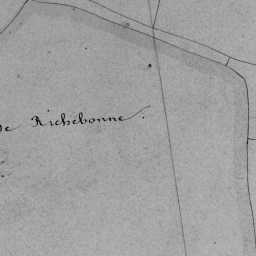 de Richebonne.